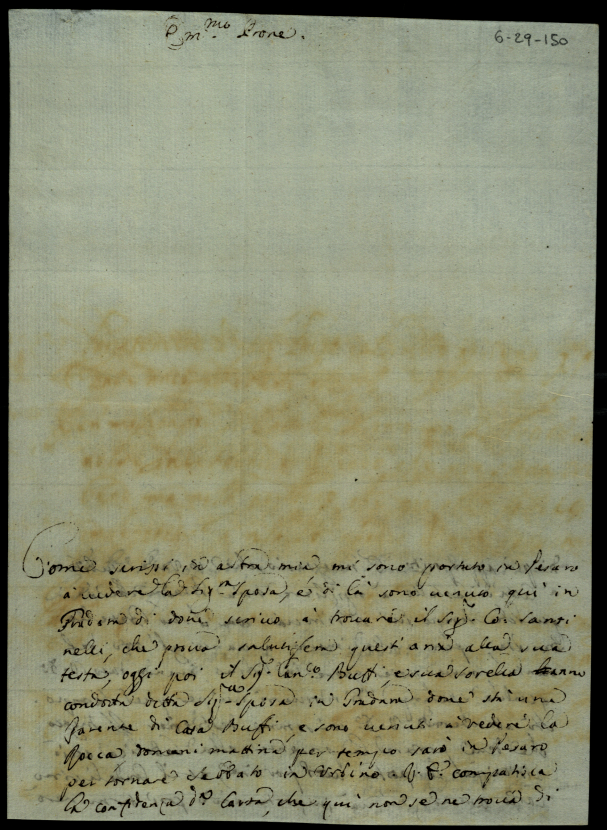 Em.mo Prone.
6-29-150
Come scrissi in altra mia mi sono portato in Pesaro
à vedere la Sig.ra Sposa, é di là sono venuto qui in
Gradara di dove scrivo à trovare il Sig.r Co: Santi
nelli, che prova salutifera quest'aria alla sua
testa, oggi poi il Sig.r Can.co Buffi, e sua sorella hanno
condotta detta Sig.ra Sposa in Gradara dove stà una
Parente di Casa Buffi, e sono venuti à vedere la
Rocca domani mattina per tempo sarò in Pesaro
per tornare Sabbato in Urbino. V. E. compatisca
la confidenza d. Carta, che qui non se ne trova di